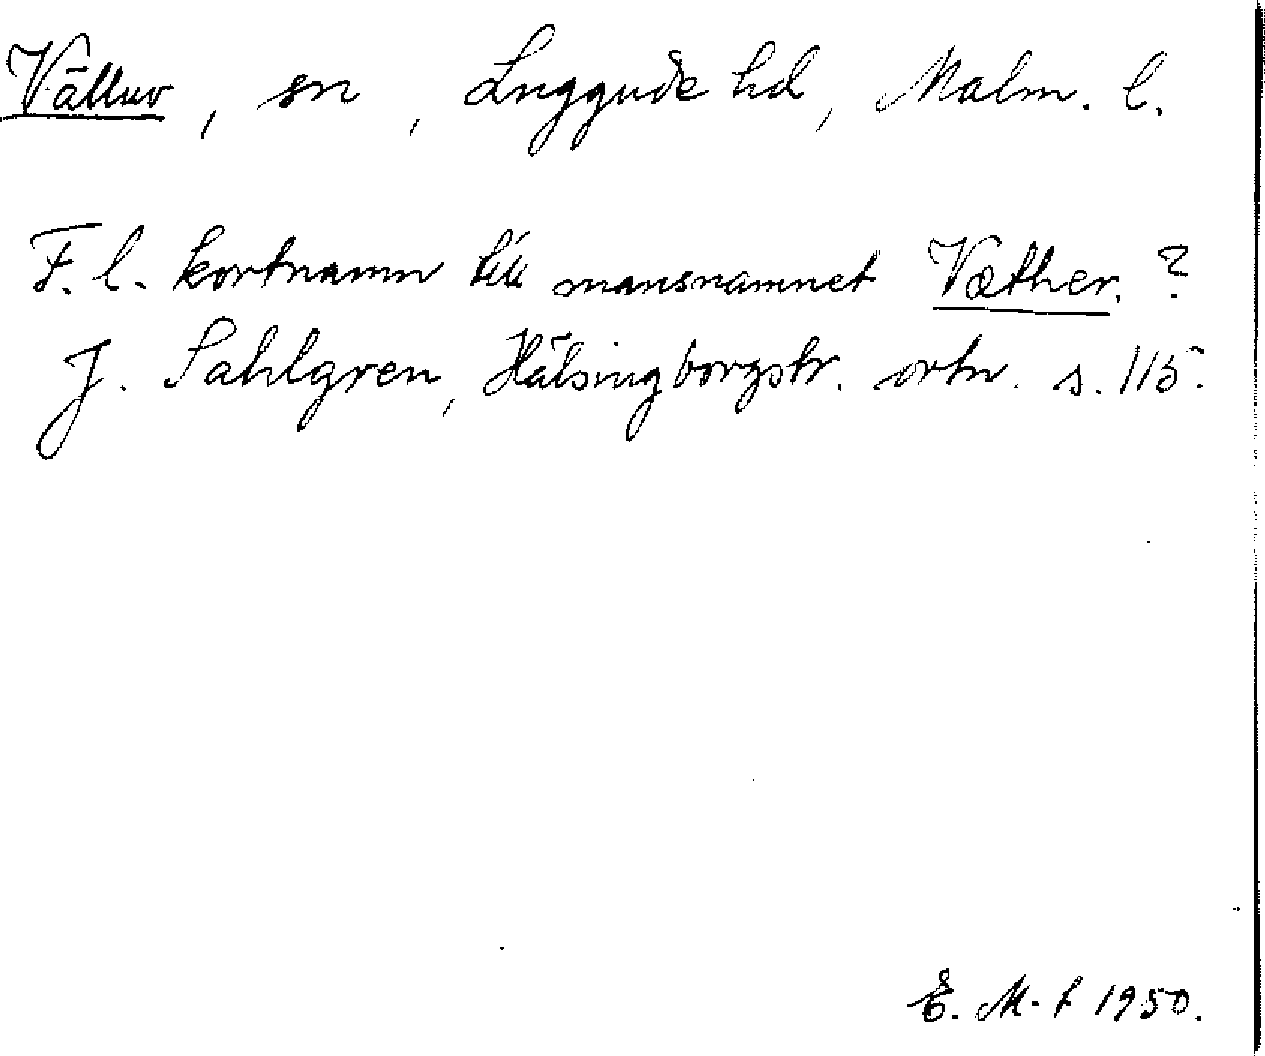 Välluv, sn, Luggude hd, Malm. l.
F. l. kortnamn till mansnamnet Væther. ?
J. Sahlgren, Hälsingborgstr. ortn. s. 115.
E. M-t 1950.